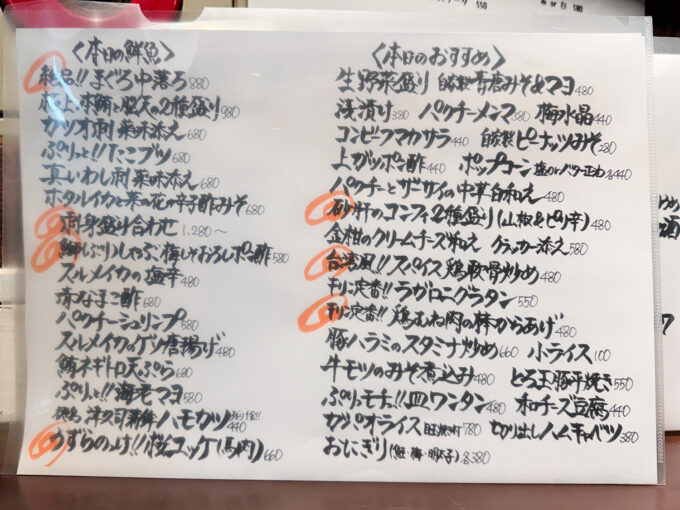 550
赤 or 白 580
〈本日の鮮魚〉
絶品!! まぐろ中落ち 880
極上本鮪と脳天の2種盛り 980
カツオ刺 薬味添え 680
ぷりっと!! たこブツ 680
真いわし刺 薬味添え 680
ホタルイカと菜の花の辛子酢みそ 680
刺身盛り合わせ 1,280〜
鰤しゃぶ 梅しそおろしポン酢 580
スルメイカの塩辛 480
赤なまこ酢 680
パクチーシュリンプ 580
スルメイカゲソ唐揚げ 480
鮪ネギトロ天ぷら 680
ぷりっと!! 海老マヨ 580
徳島 津久司蒲鉾 ハモカツ 440
うずらのっけ!! 桜ユッケ(馬肉) 660
〈本日のおすすめ〉
生野菜盛り 自家製青唐みそ&マヨ 480
浅漬け 380 パクチーメンマ 380 梅水晶 440
コンビーフマカサラ 440 自家製ピーナッツみそ 280
上ガツポン酢 440 ポップコーン 塩 or バター正油 各440
パクチーとザーサイの中華白和え 480
砂肝のコンフィ 2種盛り(山椒&ピリ辛) 480
金柑のクリームチーズ和え クラッカー添え 580
台湾風!! スパイス鶏軟骨炒め 480
キリン定番!! ラガローグラタン 550
キリン定番!! 鶏むね肉の棒からあげ 480
豚ハラミのスタミナ炒め 660 小ライス 100
牛モツのみそ煮込み 480 とろ玉豚平焼き 550
ぷりモチ!! 皿ワンタン 480 和チーズ豆腐 440
ガパオライス 目玉焼付 780 切り出しハムキャベツ 380
おにぎり (鮭・梅・明太子) 各380